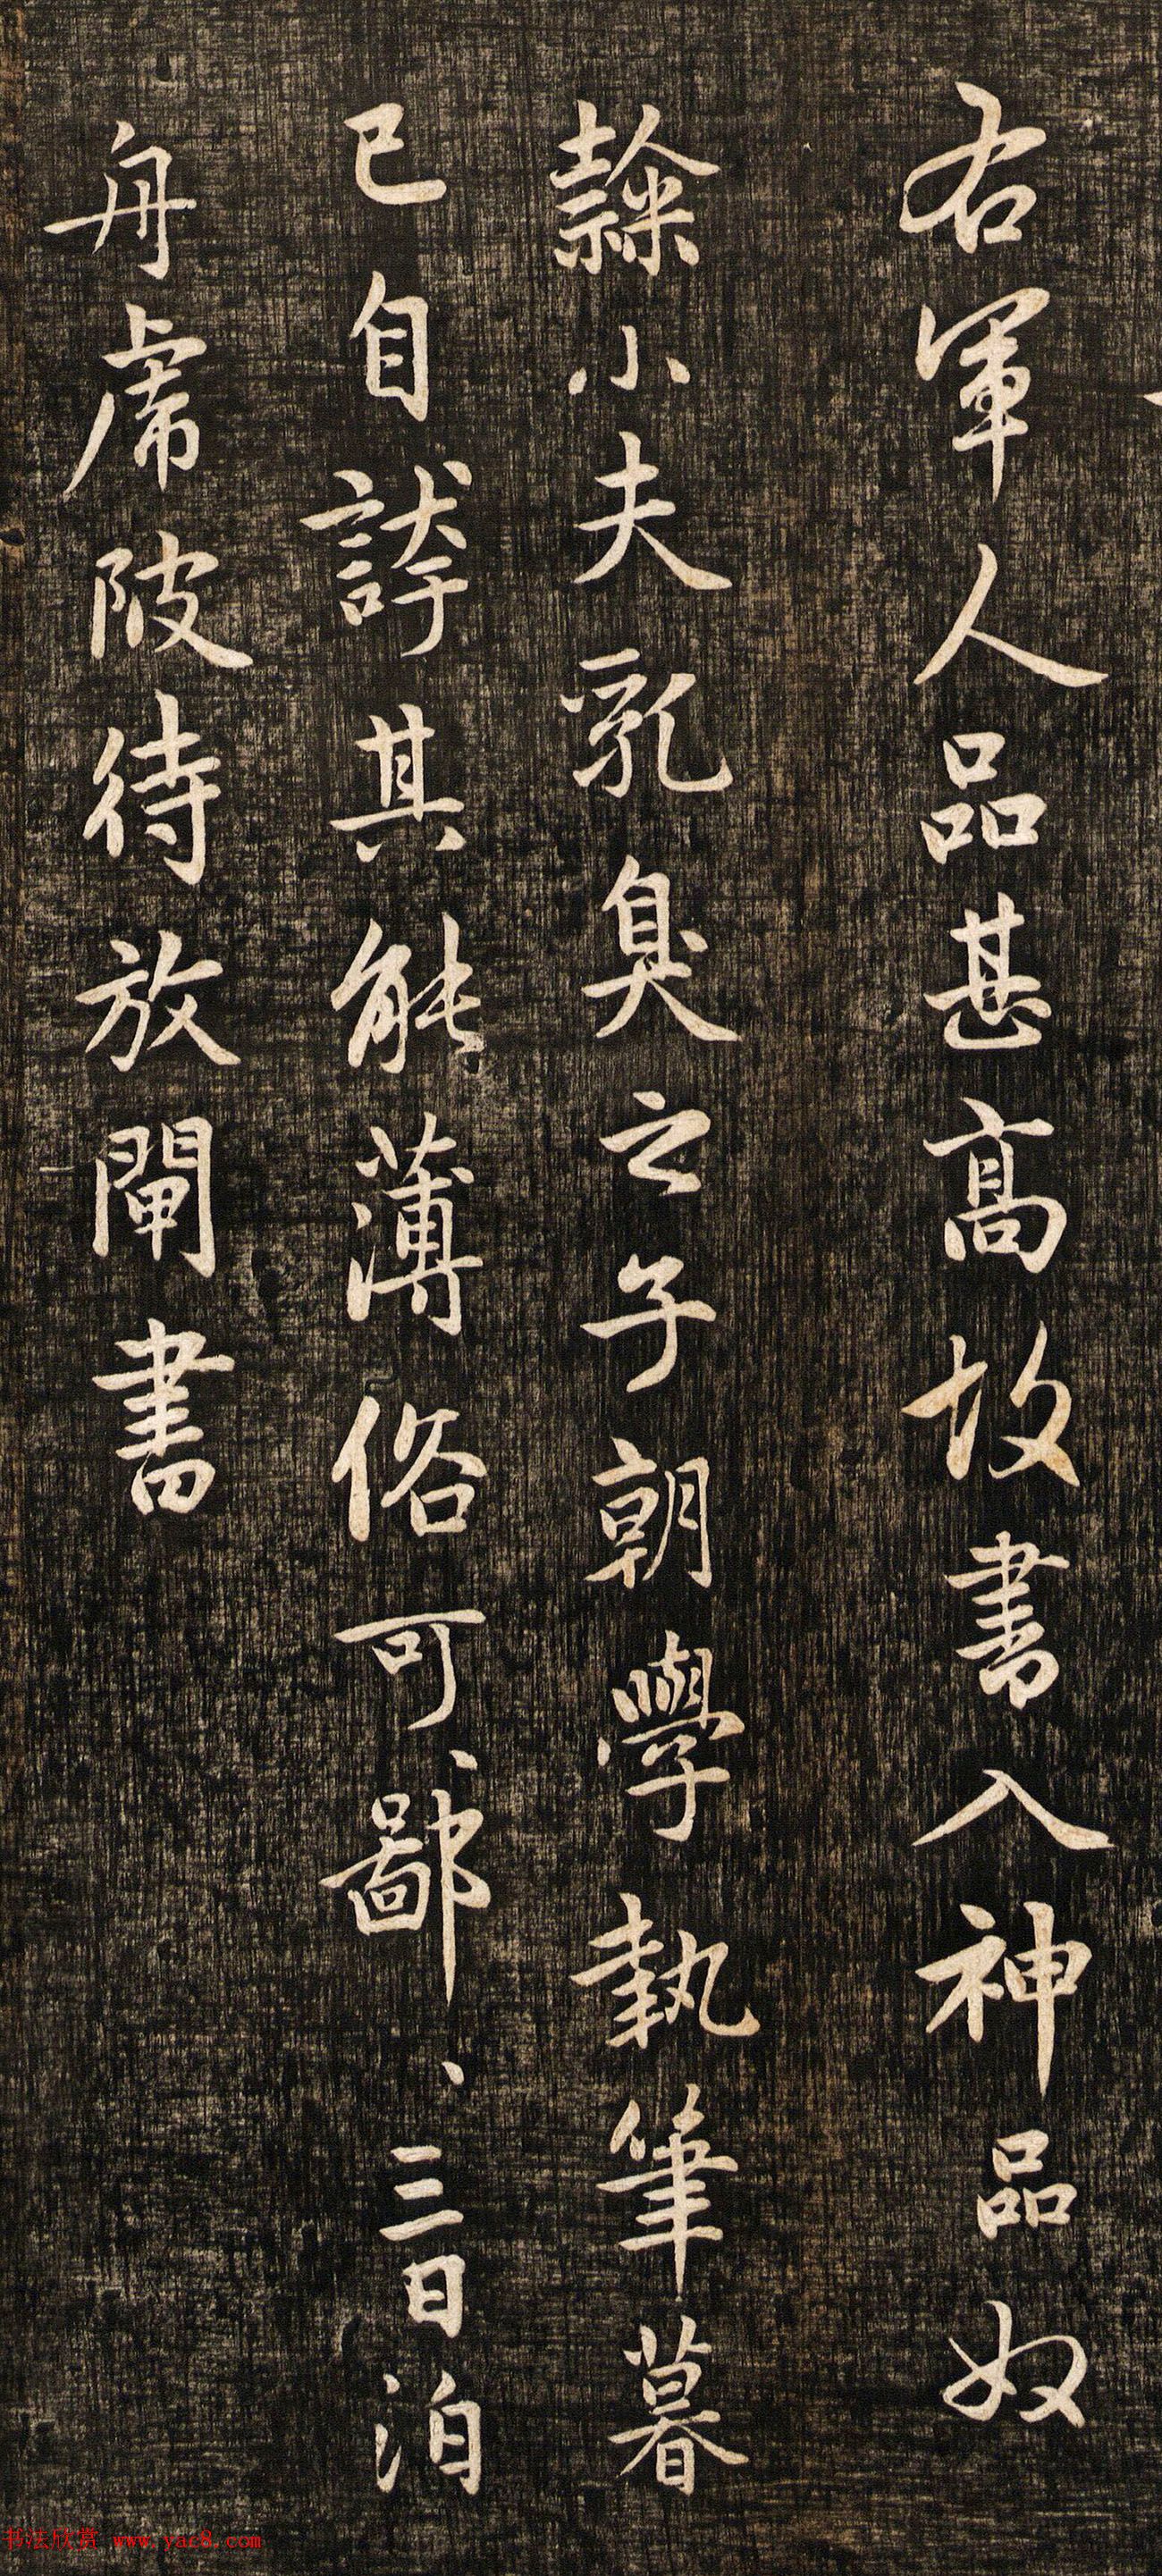 右軍人品甚高故書入神品奴
隸小夫乳臭之子朝學執筆暮
已自誇其能薄俗可、鄙、三日泊
舟虎陂待放閘書
书法欣赏 www.yac8.com